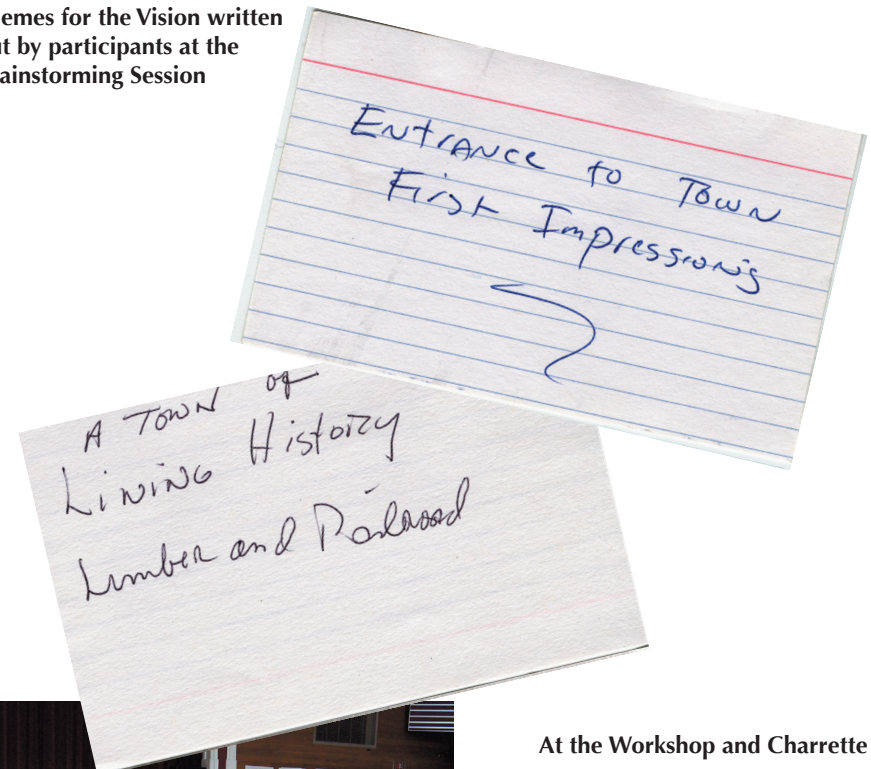 emes for the Vision written
t by participants at the
ainstorming Session
Entrance to Town
First Impressions
A Town of
Living History
Lumber and Railroad
At the Workshop and Charrette